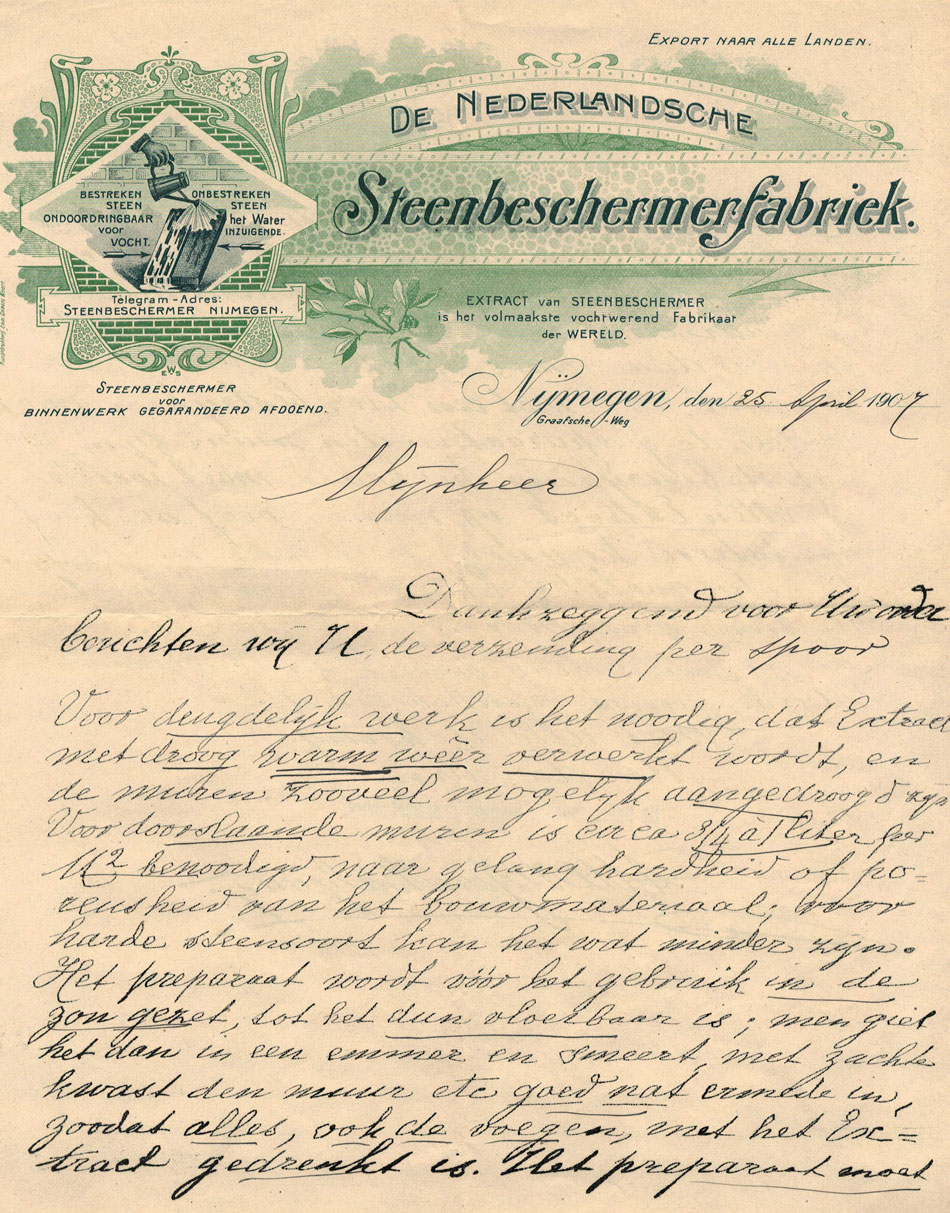 EXPORT NAAR ALLE LANDEN.
DE NEDERLANDSCHE
Steenbeschermerfabriek.
BESTREKEN STEEN ONDOORDRINGBAAR voor VOCHT.
ONBESTREKEN STEEN het Water INZUIGENDE.
Telegram-Adres:
STEENBESCHERMER NIJMEGEN.
EWS
EXTRACT van STEENBESCHERMER
is het volmaakste vochtwerend Fabrikaat
der WERELD.
STEENBESCHERMER
voor
BINNENWERK GEGARANDEERD AFDOEND.
Nijmegen, den 25 April 1907
Graafsche-Weg
Mijnheer
Dankzeggend voor Uw order
berichten wij U, de verzending per spoor
Voor deugdelijk werk is het noodig, dat Extract
met droog warm wéér verwerkt wordt, en
de muren zooveel mogelijk aangedroogd zijn
Voor doorslaande muren is circa 3/4 à 1 liter per
M2 benoodigd, naar gelang hardheid of po=
reusheid van het bouwmateriaal; voor
harde steensoort kan het wat minder zijn.
Het preparaat wordt vóór het gebruik in de
zon gezet, tot het dun vloeibaar is; men giet
het dan in een emmer en smeert, met zachte
kwast den muur etc goed nat ermede in,
zoodat alles, ook de voegen, met het Ex=
tract gedrenkt is. Het preparaat moet